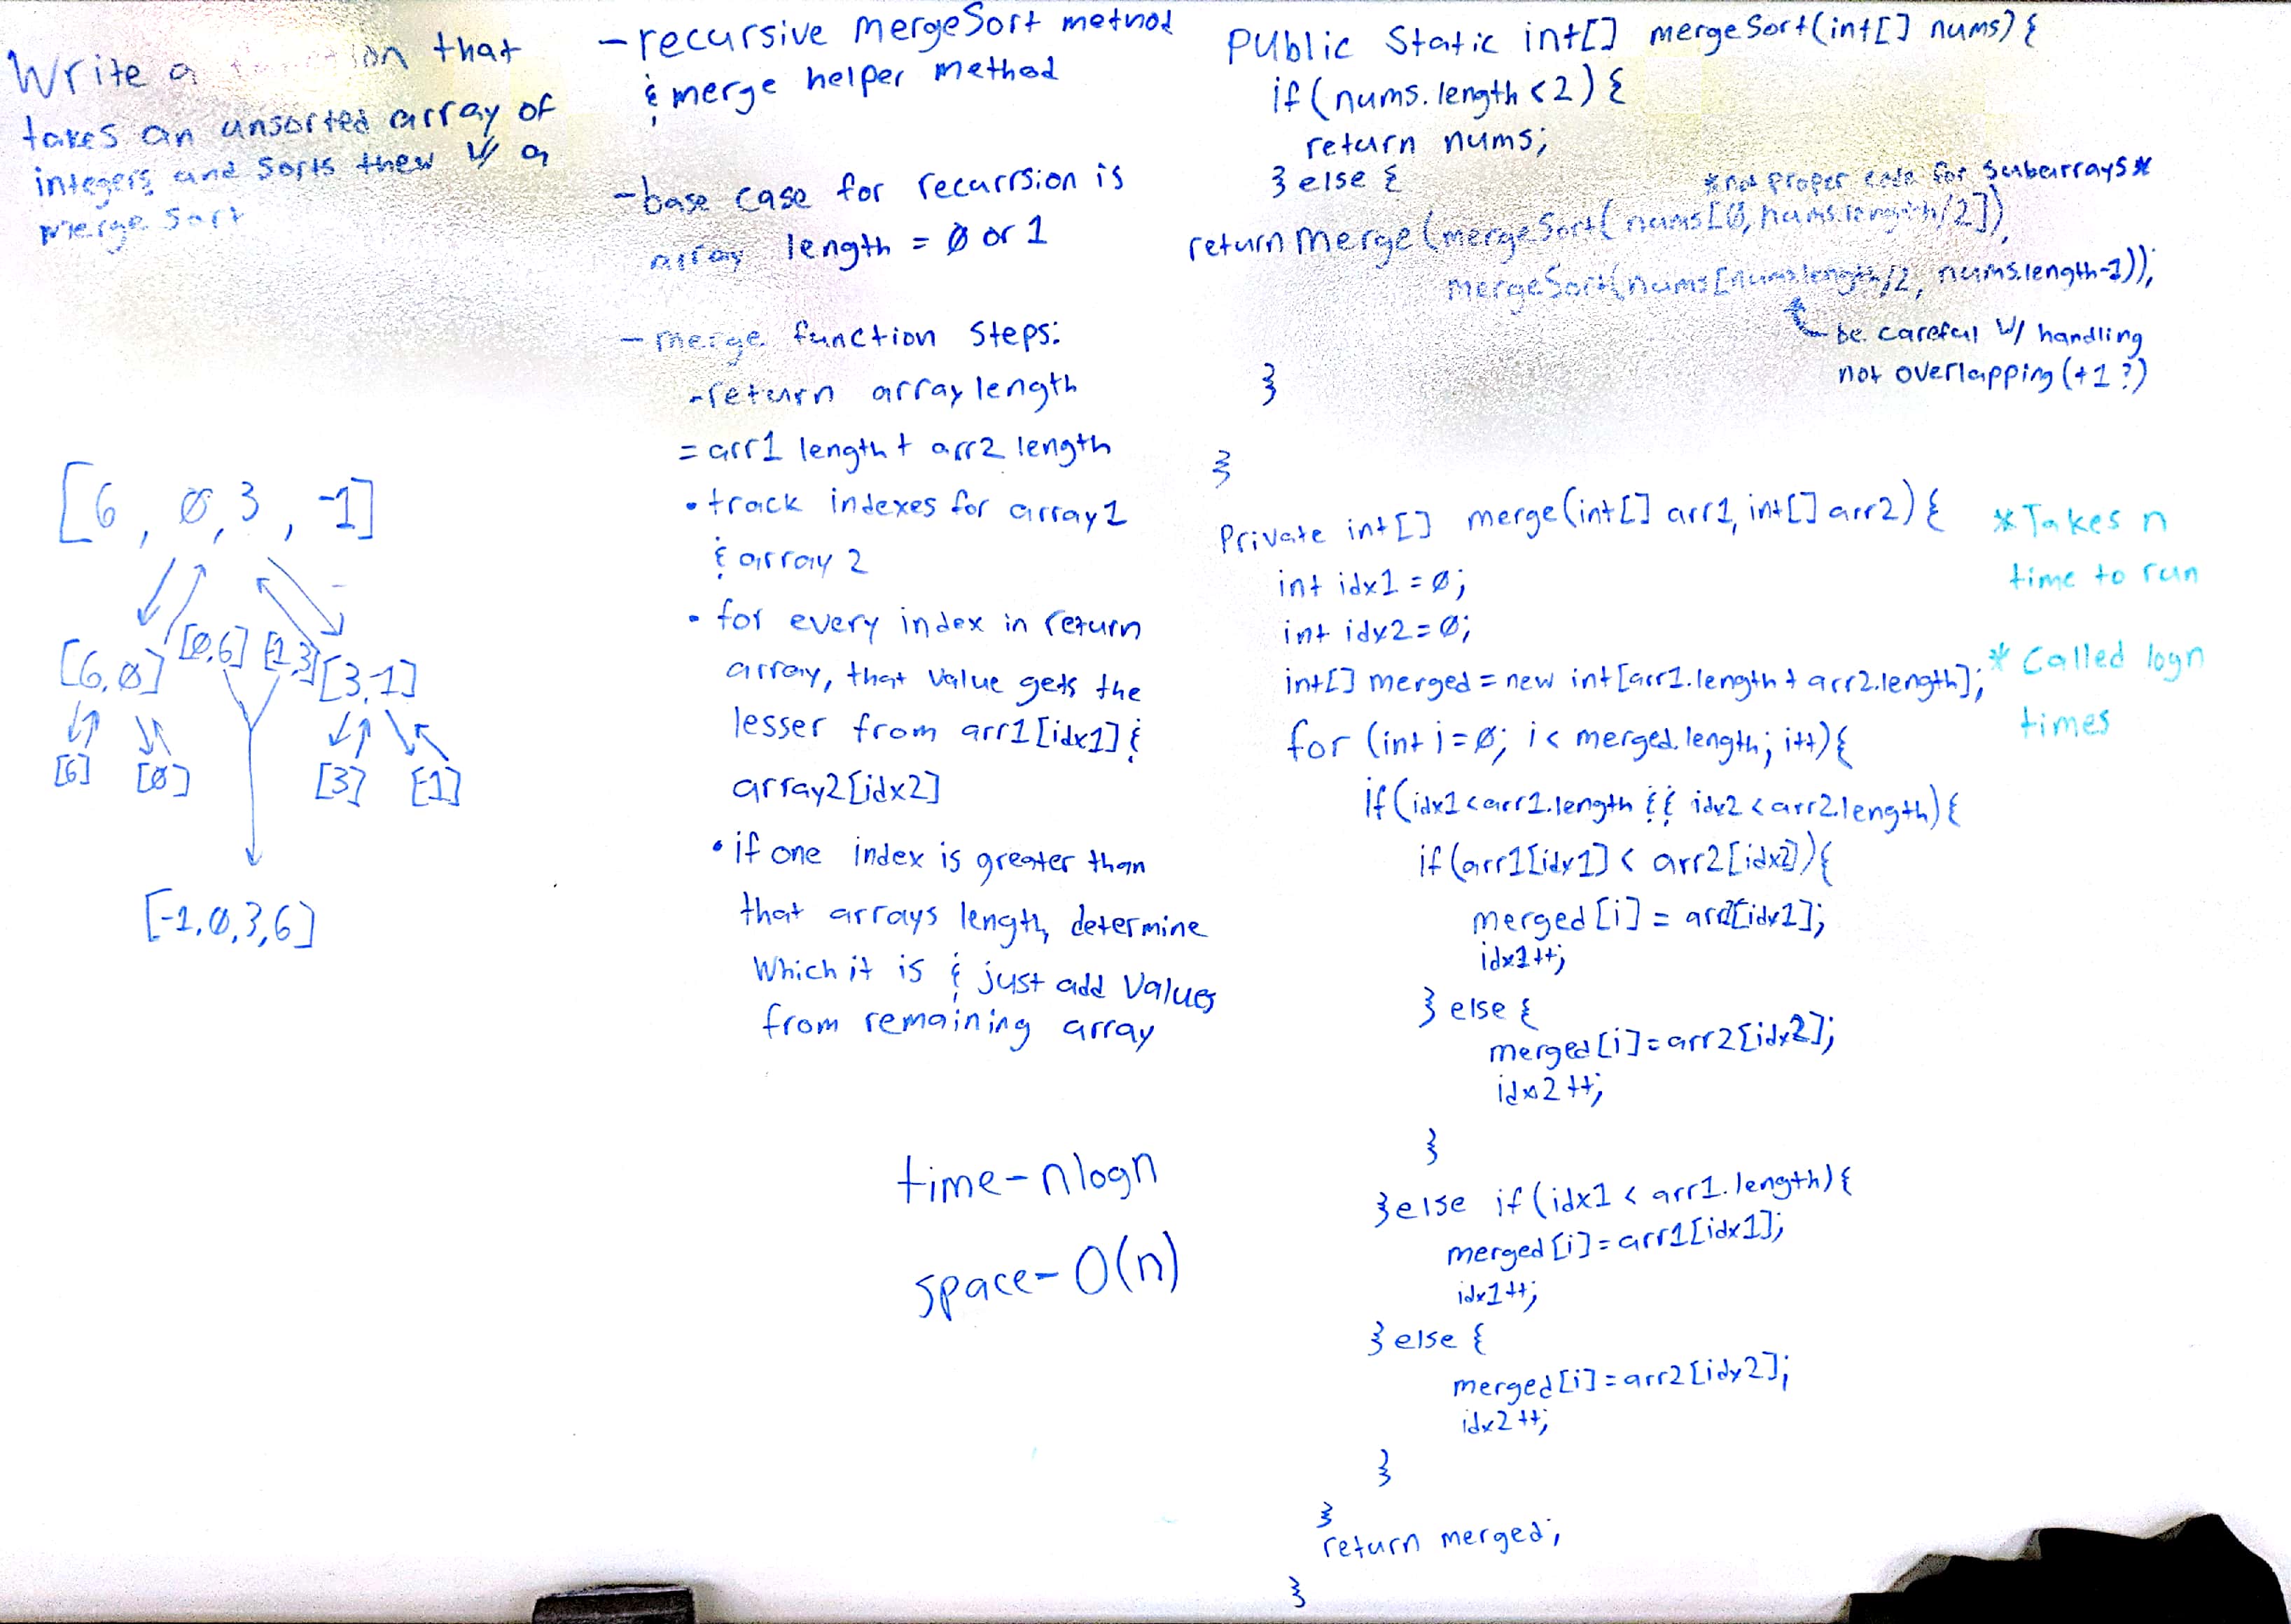 Write a function that
takes an unsorted array of
integers and sorts them w/ a
merge sort
[6, 0, 3, -1]
[6,0] [0,6] [-1,3] [3,-1]
[6] [0] [3] [-1]
[-1,0,3,6]
- recursive mergeSort method
& merge helper method
- base case for recurrsion is
array length = 0 or 1
- merge function steps:
- return array length
= arr1 length + arr2 length
• track indexes for array 1
& array 2
• for every index in return
array, that value gets the
lesser from arr1[idx1] &
array2[idx2]
• if one index is greater than
that arrays length, determine
which it is & just add values
from remaining array
time - nlogn
space - O(n)
Public Static int[] mergeSort(int[] nums){
if(nums.length<2){
return nums;
} else {
*not proper code for subarrays*
return merge(mergeSort(nums[0, nums.length/2]),
mergeSort(nums[nums.length/2, nums.length-1));
be careful w/ handling
not overlapping (+1?)
}
}
Private int[] merge(int[] arr1, int[] arr2){
int idx1 = 0;
int idx2 = 0;
int[] merged = new int[arr1.length + arr2.length];
for (int i=0; i< merged.length; i++){
if(idx1<arr1.length && idx2<arr2.length){
if(arr1[idx1] < arr2[idx2]){
merged[i] = arr1[idx1];
idx1++;
} else {
merged[i]=arr2[idx2];
idx2++;
}
} else if(idx1 < arr1.length){
merged[i]=arr1[idx1];
idx1++;
} else {
merged[i]=arr2[idx2];
idx2++;
}
}
return merged;
}
*Takes n
time to run
*Called logn
times